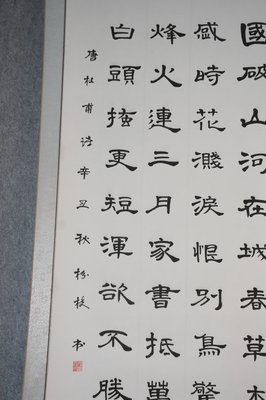 國破山河在城春草木
感時花濺淚恨別鳥驚
烽火連三月家書抵萬
白頭搔更短渾欲不勝
唐杜甫诗辛丑秋书